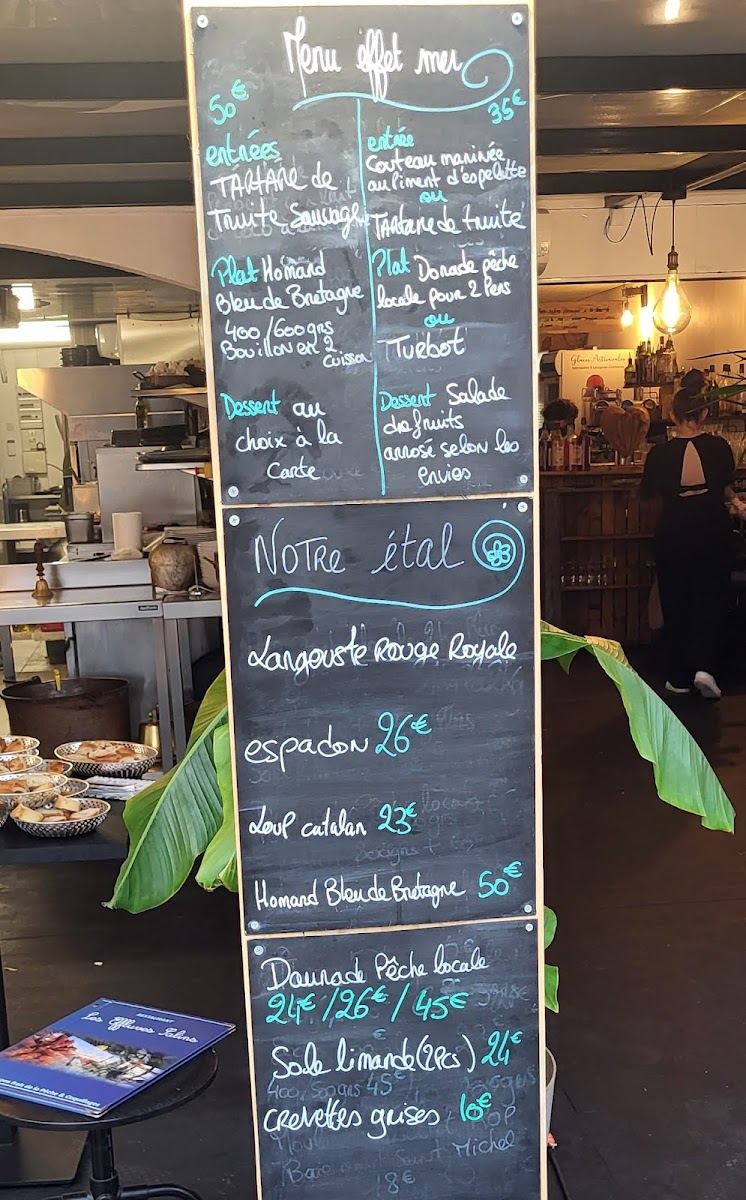 Menu effet mer
50€
entrées
TARTARE de
Truite Sauvage
Plat Homard
Bleu de Bretagne
400/600grs
Bouillon en 2
cuisson
Dessert au
choix à la
Carte
35€
entrée
Couteau marinée
au Piment d'espelette
ou
TARTare de truite
Plat Dorade pêche
locale pour 2 Pers
ou
Turbot
Dessert Salade
de fruits
arrosé selon les
envies
NOTRe étal
Langouste Rouge Royale
espadon 26€
Loup catalan 23€
Homard Bleu de Bretagne 50€
Daurade Pêche locale
24€/26€/45€
Sole limande (2Pcs) 24€
crevettes grises 10€
RESTAURANT
Les Effluves Salins
Glaces Artisanales